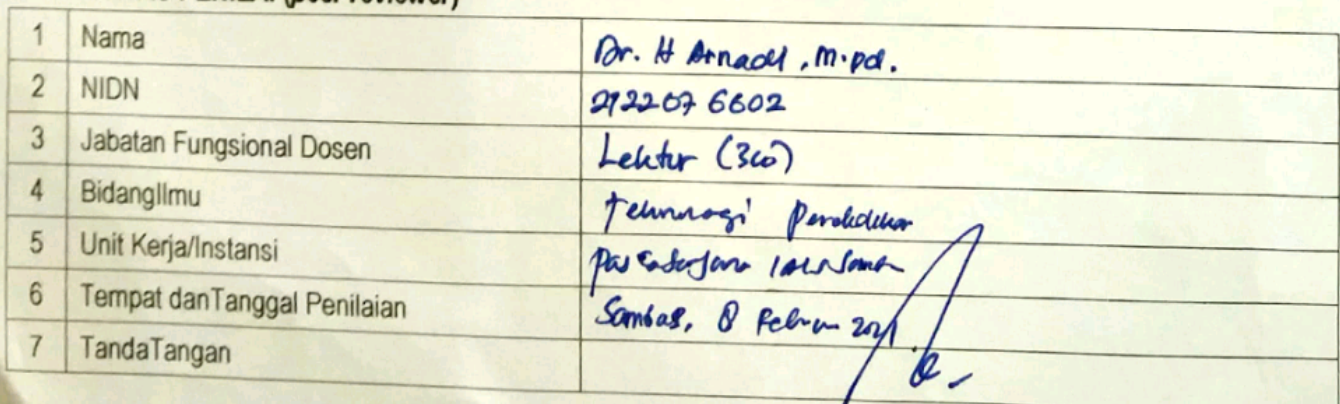 (peer reviewer)
1 Nama Dr. H Arnadi, M.pd.
2 NIDN 2122076602
3 Jabatan Fungsional Dosen Lektor (300)
4 BidangIlmu Teknologi Pendidikan
5 Unit Kerja/Instansi Pascasarjana
6 Tempat danTanggal Penilaian Sambas, 8 Februari 2021
7 TandaTangan